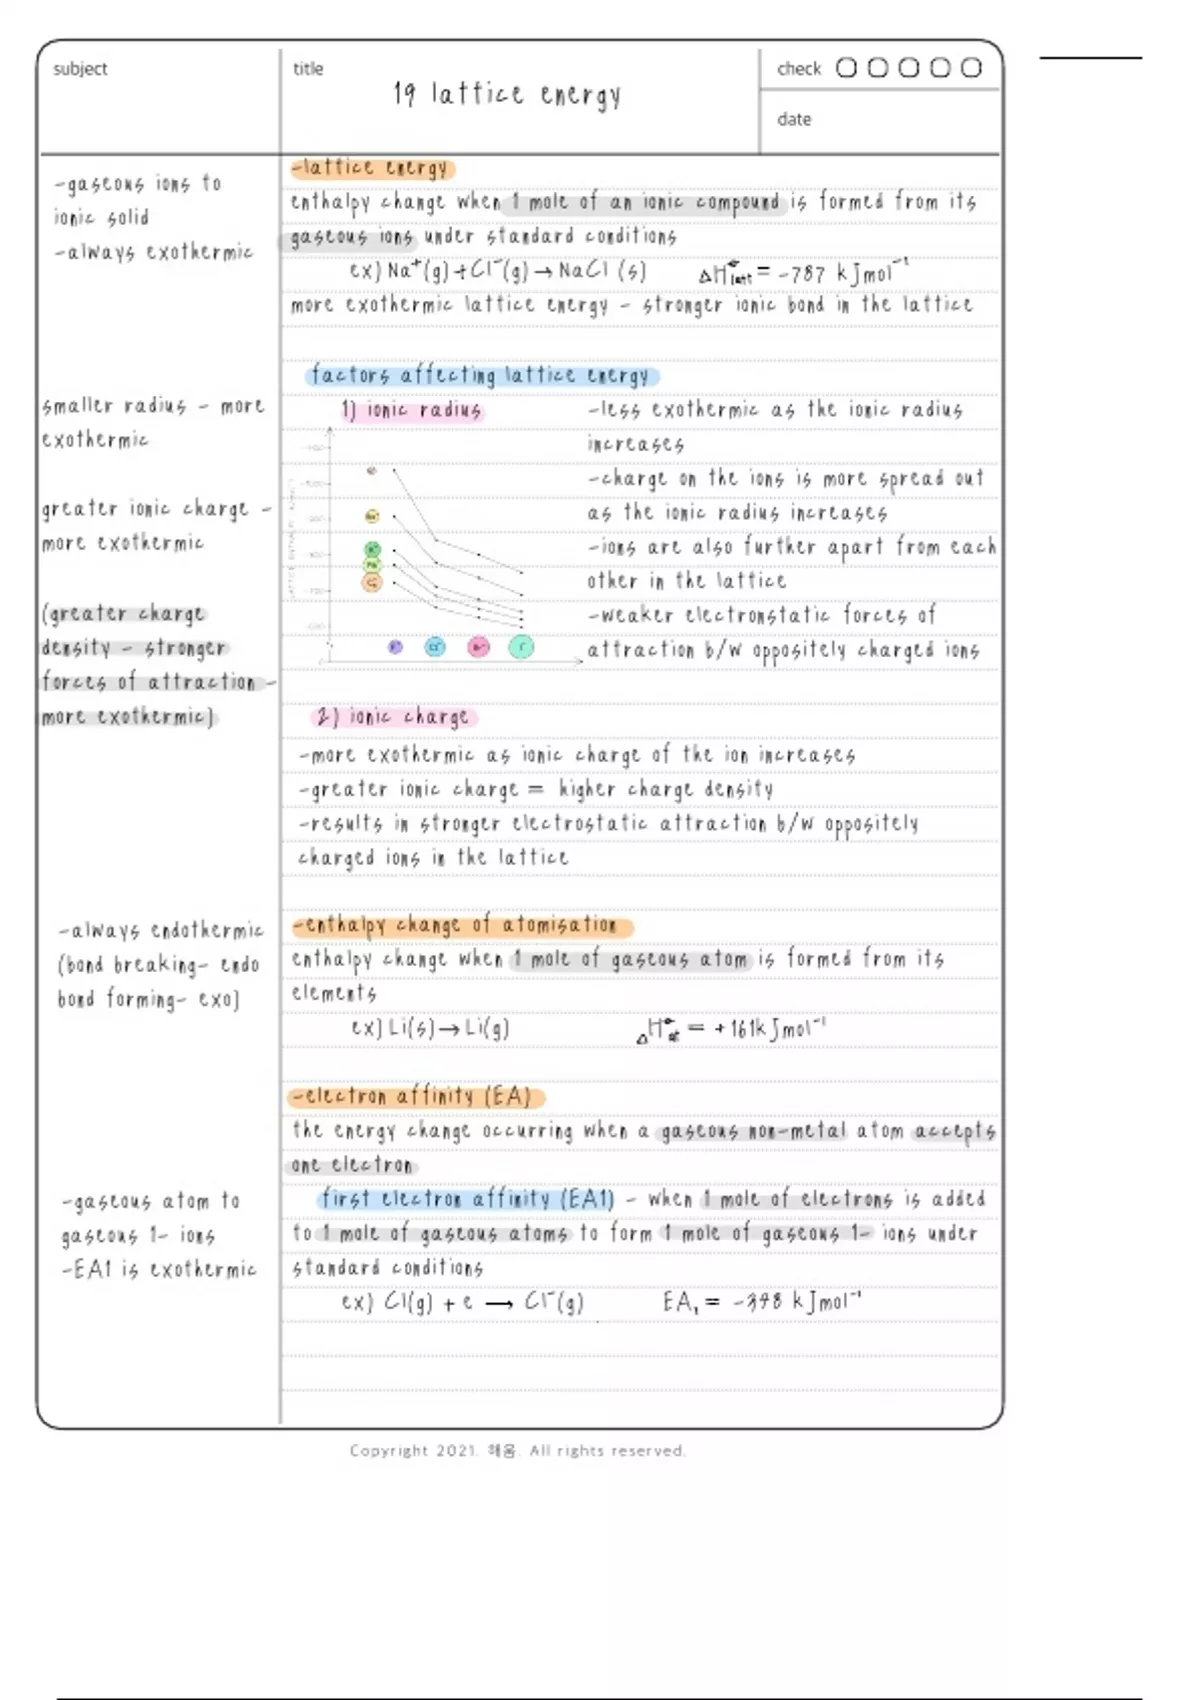 subject
title
19 lattice energy
check
date
-gaseous ions to
ionic solid
-always exothermic
smaller radius - more
exothermic
greater ionic charge -
more exothermic
(greater charge
density - stronger
forces of attraction -
more exothermic)
-always endothermic
(bond breaking- endo
bond forming- exo)
-gaseous atom to
gaseous 1- ions
-EA1 is exothermic
-lattice energy
enthalpy change when 1 mole of an ionic compound is formed from its
gaseous ions under standard conditions
ex) Na⁺(g) + Cl⁻(g) → NaCl (s) ΔH⦵latt = -787 kJmol⁻¹
more exothermic lattice energy - stronger ionic bond in the lattice
factors affecting lattice energy
1) ionic radius
-less exothermic as the ionic radius
increases
-charge on the ions is more spread out
as the ionic radius increases
-ions are also further apart from each
other in the lattice
-weaker electronstatic forces of
attraction b/w oppositely charged ions
2) ionic charge
-more exothermic as ionic charge of the ion increases
-greater ionic charge = higher charge density
-results in stronger electrostatic attraction b/w oppositely
charged ions in the lattice
-enthalpy change of atomisation
enthalpy change when 1 mole of gaseous atom is formed from its
elements
ex) Li(s) → Li(g) ΔH⦵at = +161kJmol⁻¹
-electron affinity (EA)
the energy change occurring when a gaseous non-metal atom accepts
one electron
first electron affinity (EA1) - when 1 mole of electrons is added
to 1 mole of gaseous atoms to form 1 mole of gaseous 1- ions under
standard conditions
ex) Cl(g) + e → Cl⁻(g) EA₁ = kJmol⁻¹
Copyright 2021. 해움. All rights reserved.